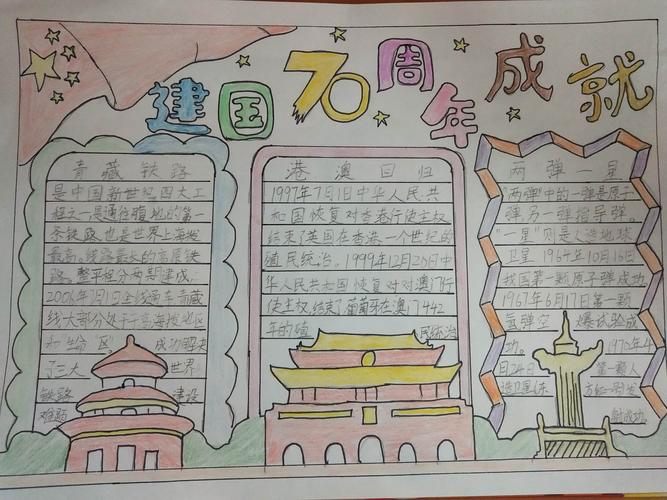 建国70周年成就
青藏铁路
是中国新世纪四大工
程之一是通往 地的第一
条铁路,也是世界上海拔
最高、线路最长的高原铁
路 整平程分两期建成,
2006年7月1日全线通车青藏
线大部分处于高海拔地区
和 区”。 成功解决
了三大 世界
铁路 建设
难题
港澳回归
1997年7月1日中华人民共
和国恢复对香港行使主权
结束了英国在香港一个世纪的
殖民统治。1999年12月20日中
华人民共和国恢复对对澳门行
使主权,结束了葡萄牙在澳门442
年的殖 民统治
两弹一星
“两弹”中的一弹是原子
弹另一弹指导弹。
“一星”则是人造地球
卫星 1964年10月16日
我国第一颗原子弹成功
1967年6月17日第一颗
氢弹空 爆试验成
功。 1970年4
月24日 第一颗人
造卫星东 方红一号发
射成功。